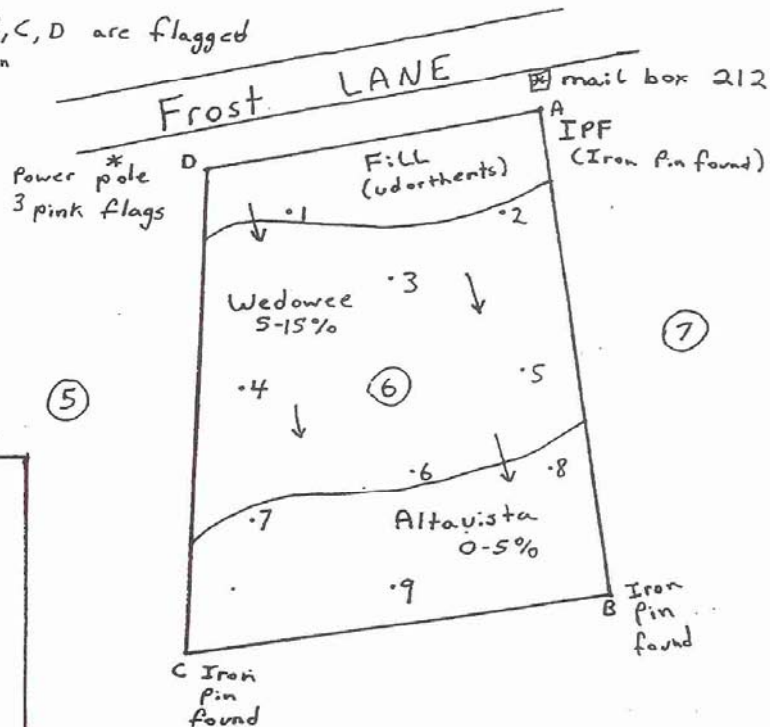 , C, D are flagged
Frost LANE
mail box 212
A
IPF
(Iron Pin found)
D
Power pole
3 pink flags
Fill
(udorthents)
.1
.2
.3
Wedowee
5-15%
7
.4
6
.5
5
.6
.8
.7
Altavista
0-5%
.9
B Iron
Pin
found
C Iron
Pin
found